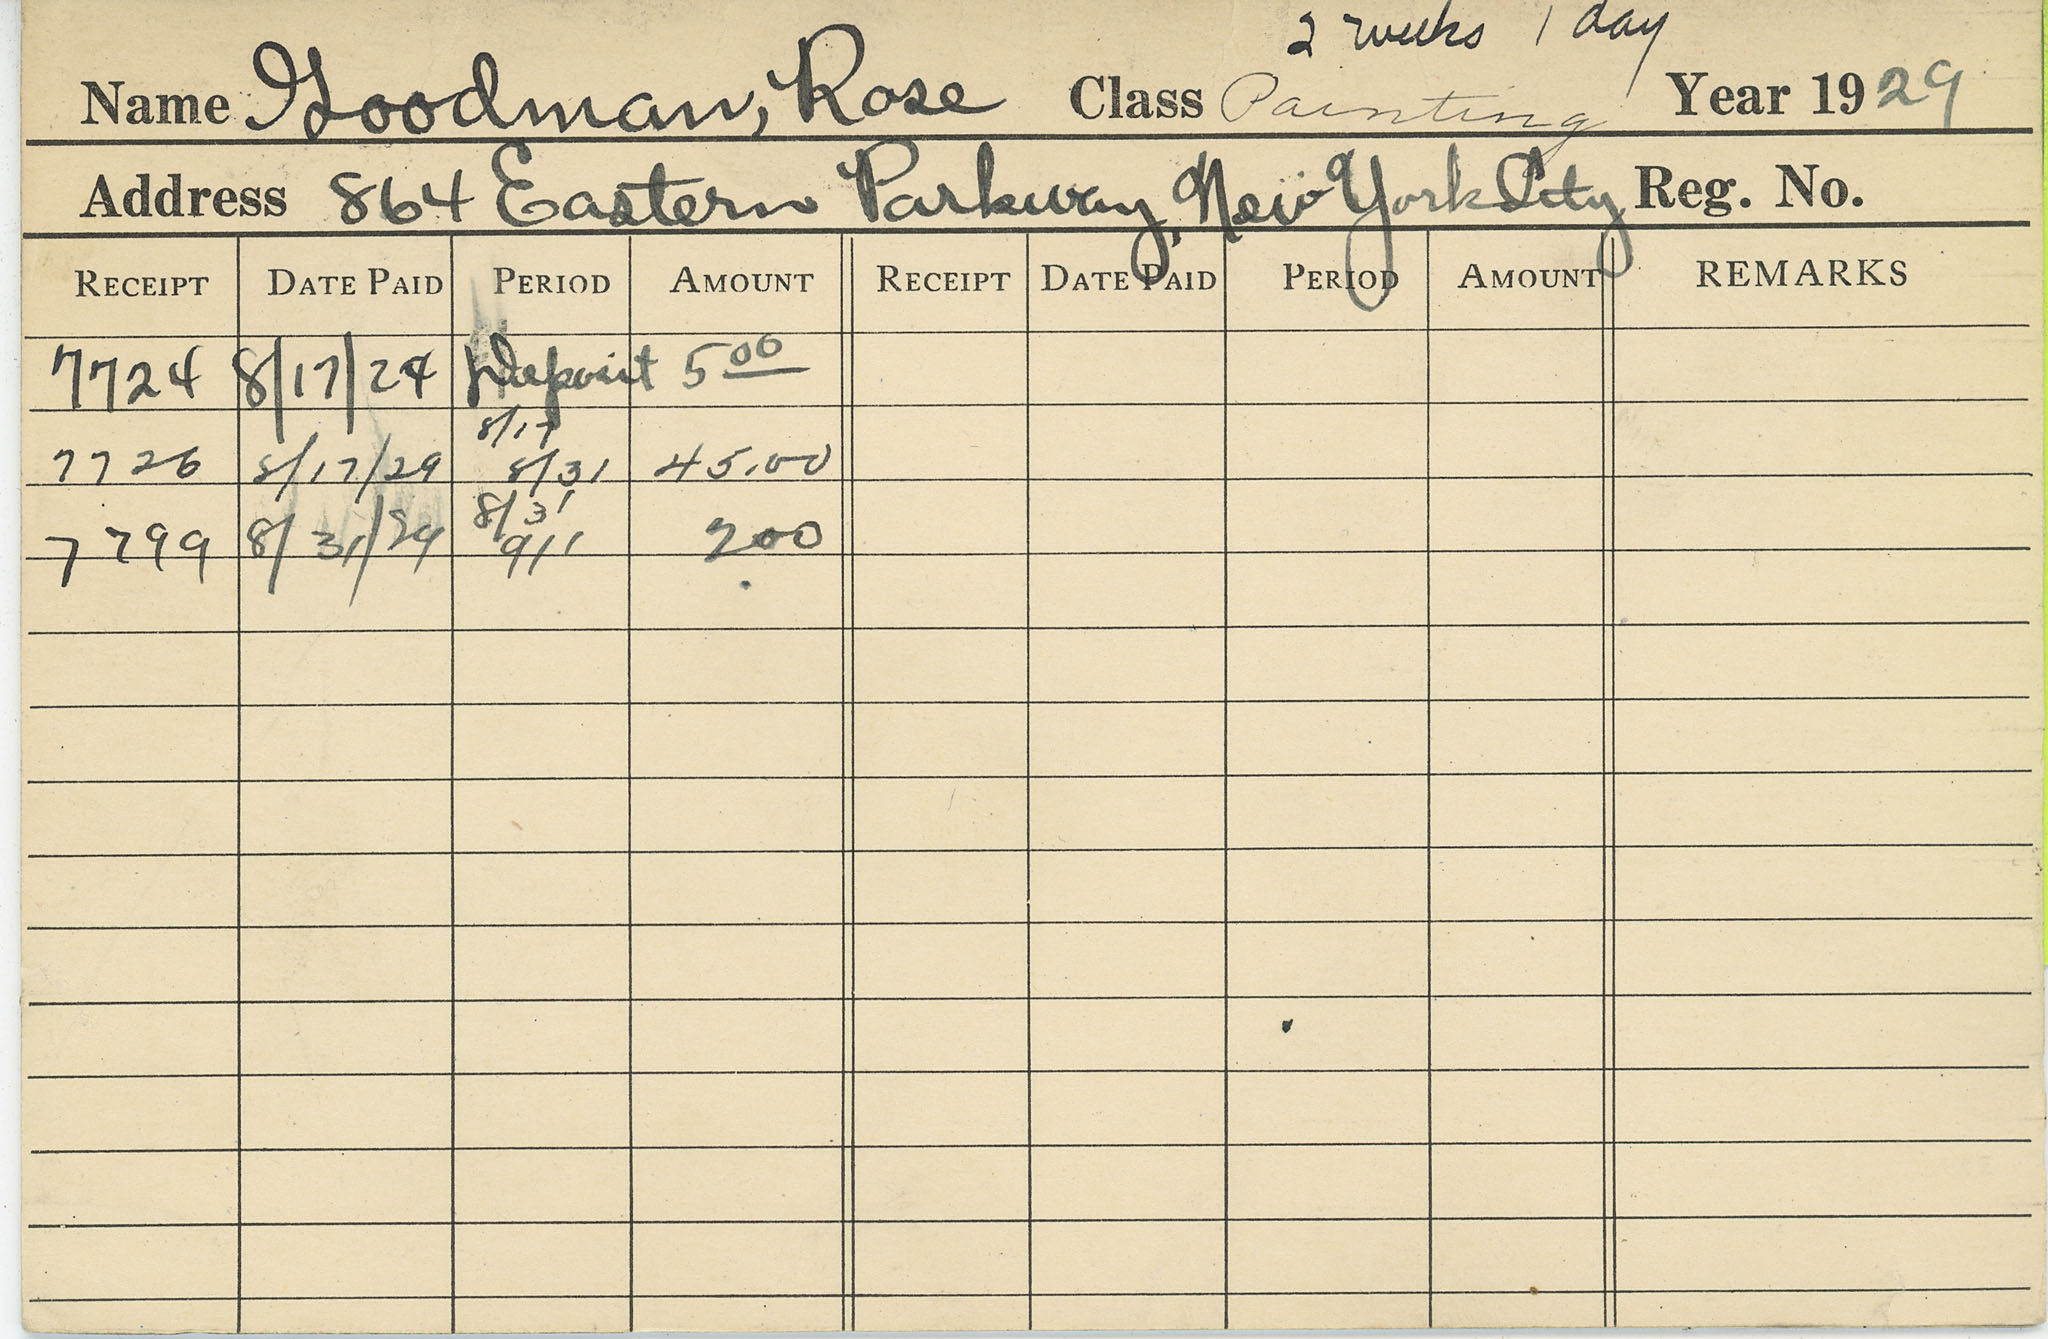 2 weeks 1 day
Name Goodman, Rose Class Painting Year 1929
Address 864 Eastern Parkway, New York City Reg. No.
RECEIPT DATE PAID PERIOD AMOUNT RECEIPT DATE PAID PERIOD AMOUNT REMARKS
7724 8/17/29 Deposit 5 00
8/17
7726 8/17/29 8/31 45.00
8/31
7799 8/31/29 9/1 200